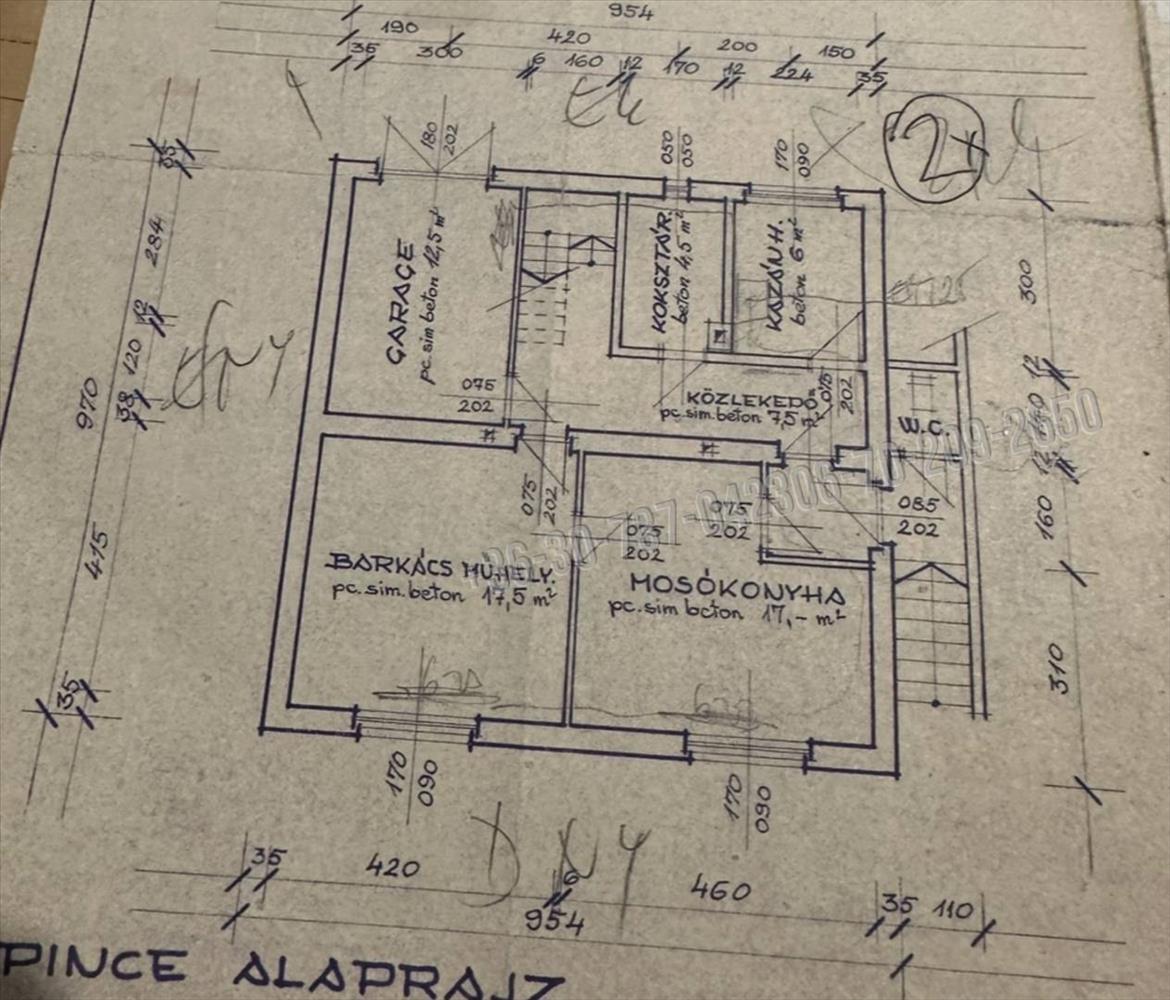 954
190 420 200 150
35 300 6 160 12 170 12 224 35
2x
180
202
050
050
170
090
35
284
12
120
38
970
415
35
GARAGE
pc. sim beton 12,5 m²
KOKSZTÁR.
beton 4,5 m²
KAZÁNH.
beton 6 m²
300
12
12
160
310
075
202
KÖZLEKEDŐ
pc. sim. beton 7,5 m²
075
202
W.C.
075
202
075
202
075
202
085
202
BARKÁCS MŰHELY.
pc. sim. beton 17,5 m²
MOSÓKONYHA
pc. sim beton 17,- m²
170
090
170
090
35 420 6 460 35 110
954
PINCE ALAPRAJZ